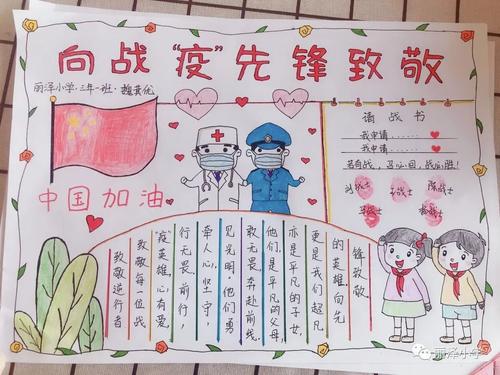 向战“疫”先锋致敬
丽泽小学·三年一班·
请战书
我申请......
我申请......
若有战,召必回,战必胜!
刘战士
陈战士
中国加油
致敬逆行者
致敬每一位战
疫英雄,心有爱
行无畏,前行,
牵人心,坚守,
见光明,他们勇
敢无畏,奔赴前线,
他们,是平凡的父母,
亦是平凡的子女,
更是我们超凡
的英雄,向先
锋致敬.
丽泽小学